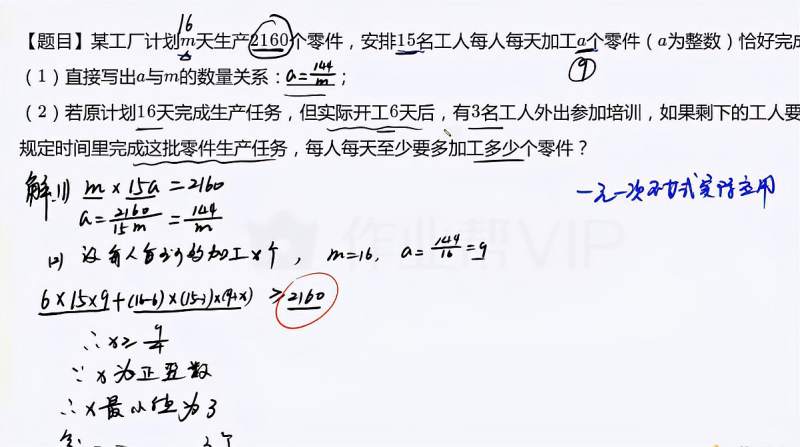 16
【题目】某工厂计划m天生产2160个零件，安排15名工人每人每天加工a个零件（a为整数）恰好完成
9
（1）直接写出a与m的数量关系：a=144/m；
（2）若原计划16天完成生产任务，但实际开工6天后，有3名工人外出参加培训，如果剩下的工人要
规定时间里完成这批零件生产任务，每人每天至少要多加工多少个零件？
解:(1) m×15a=2160
一元一次不等式实际应用
a=2160/15m=144/m
(2) 设每人每天 加工x个, m=16, a=144/16=9
6×15×9+(16-6)×(15-3)×(9+x)≥2160
∴x≥9/4
∵x为正整数
∴x最小值为3
3个